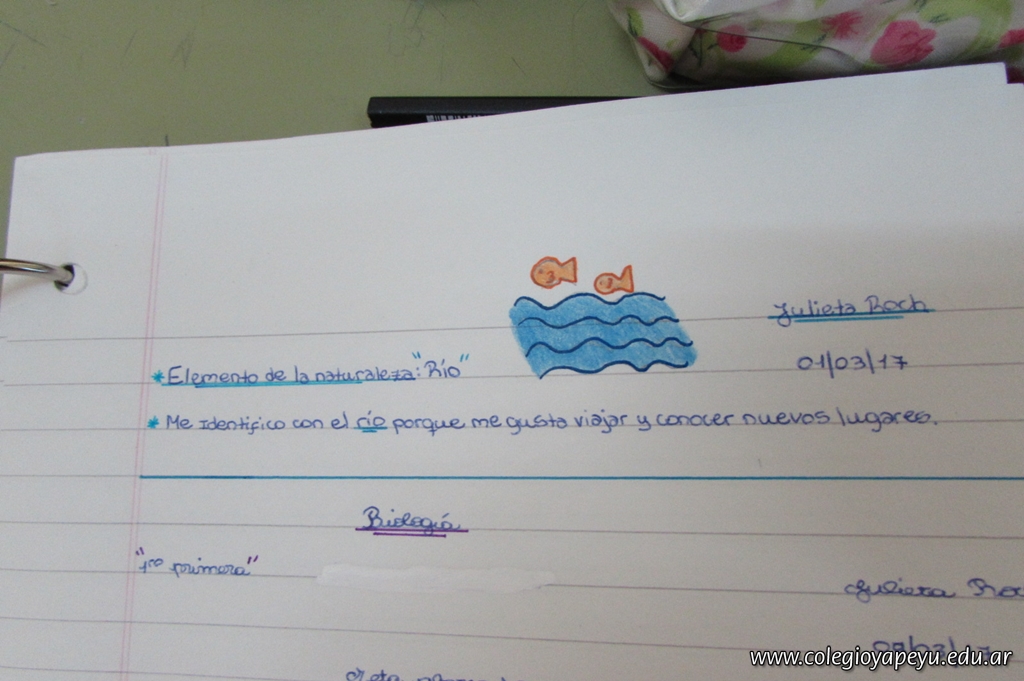 Julieta Roch
01/03/17
*Elemento de la naturaleza: "Río"
* Me identifico con el río porque me gusta viajar y conocer nuevos lugares.
Biología
"1ro primera"
Julieta Roc
www.colegioyapeyu.edu.ar